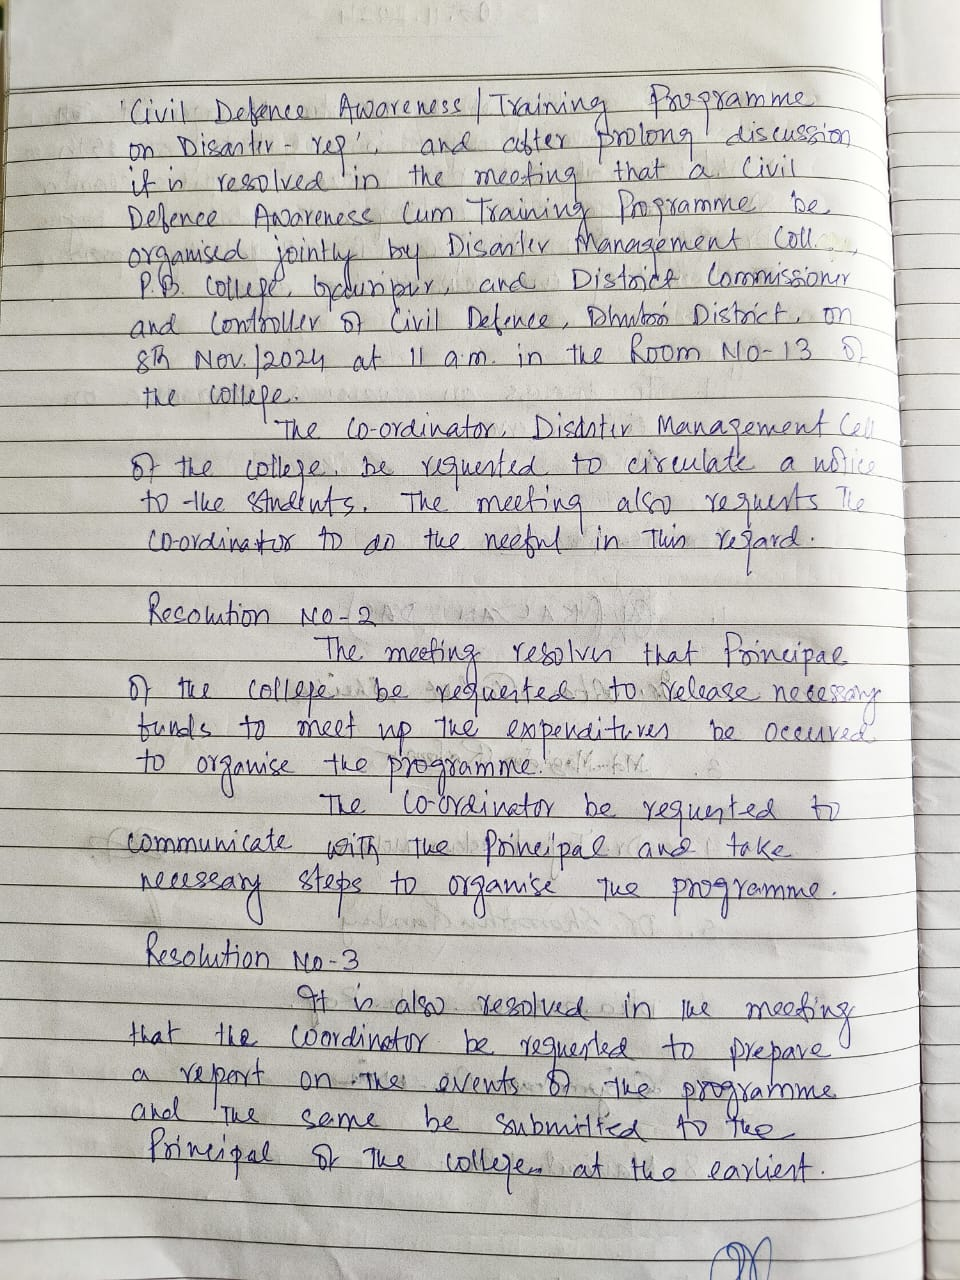 'Civil Defence Awareness/Training Programme
on Disaster - rep', and after prolong discussion
it is resolved in the meeting that a Civil
Defence Awareness Cum Training Programme be
organised jointly by Disaster Management Coll.,
P.B. College, Gauripur, and District Commissioner
and Controller of Civil Defence, Dhubri District, on
8th Nov./2024 at 11 a.m. in the Room No-13 of
the college.
The Co-ordinator, Disaster Management Cell
of the college, be requested to circulate a notice
to the students. The meeting also requests the
co-ordinator to do the neeful in this regard.
Resolution No-2
The meeting resolves that Principal
of the college be requested to release necessary
funds to meet up the expenditures be occured
to organise the programme.
The Co-ordinator be requested to
communicate with the Principal and take
necessary steps to organise the programme.
Resolution No-3
It is also resolved in the meeting
that the coordinator be requested to prepare
a report on the events of the programme
and the same be submitted to the
Principal of the college at the earliest.